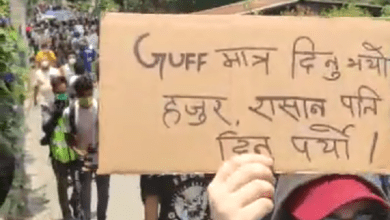 GUFF मात्र दिनु भयो
हजुर, रासान पनि
दिन पर्यो ।